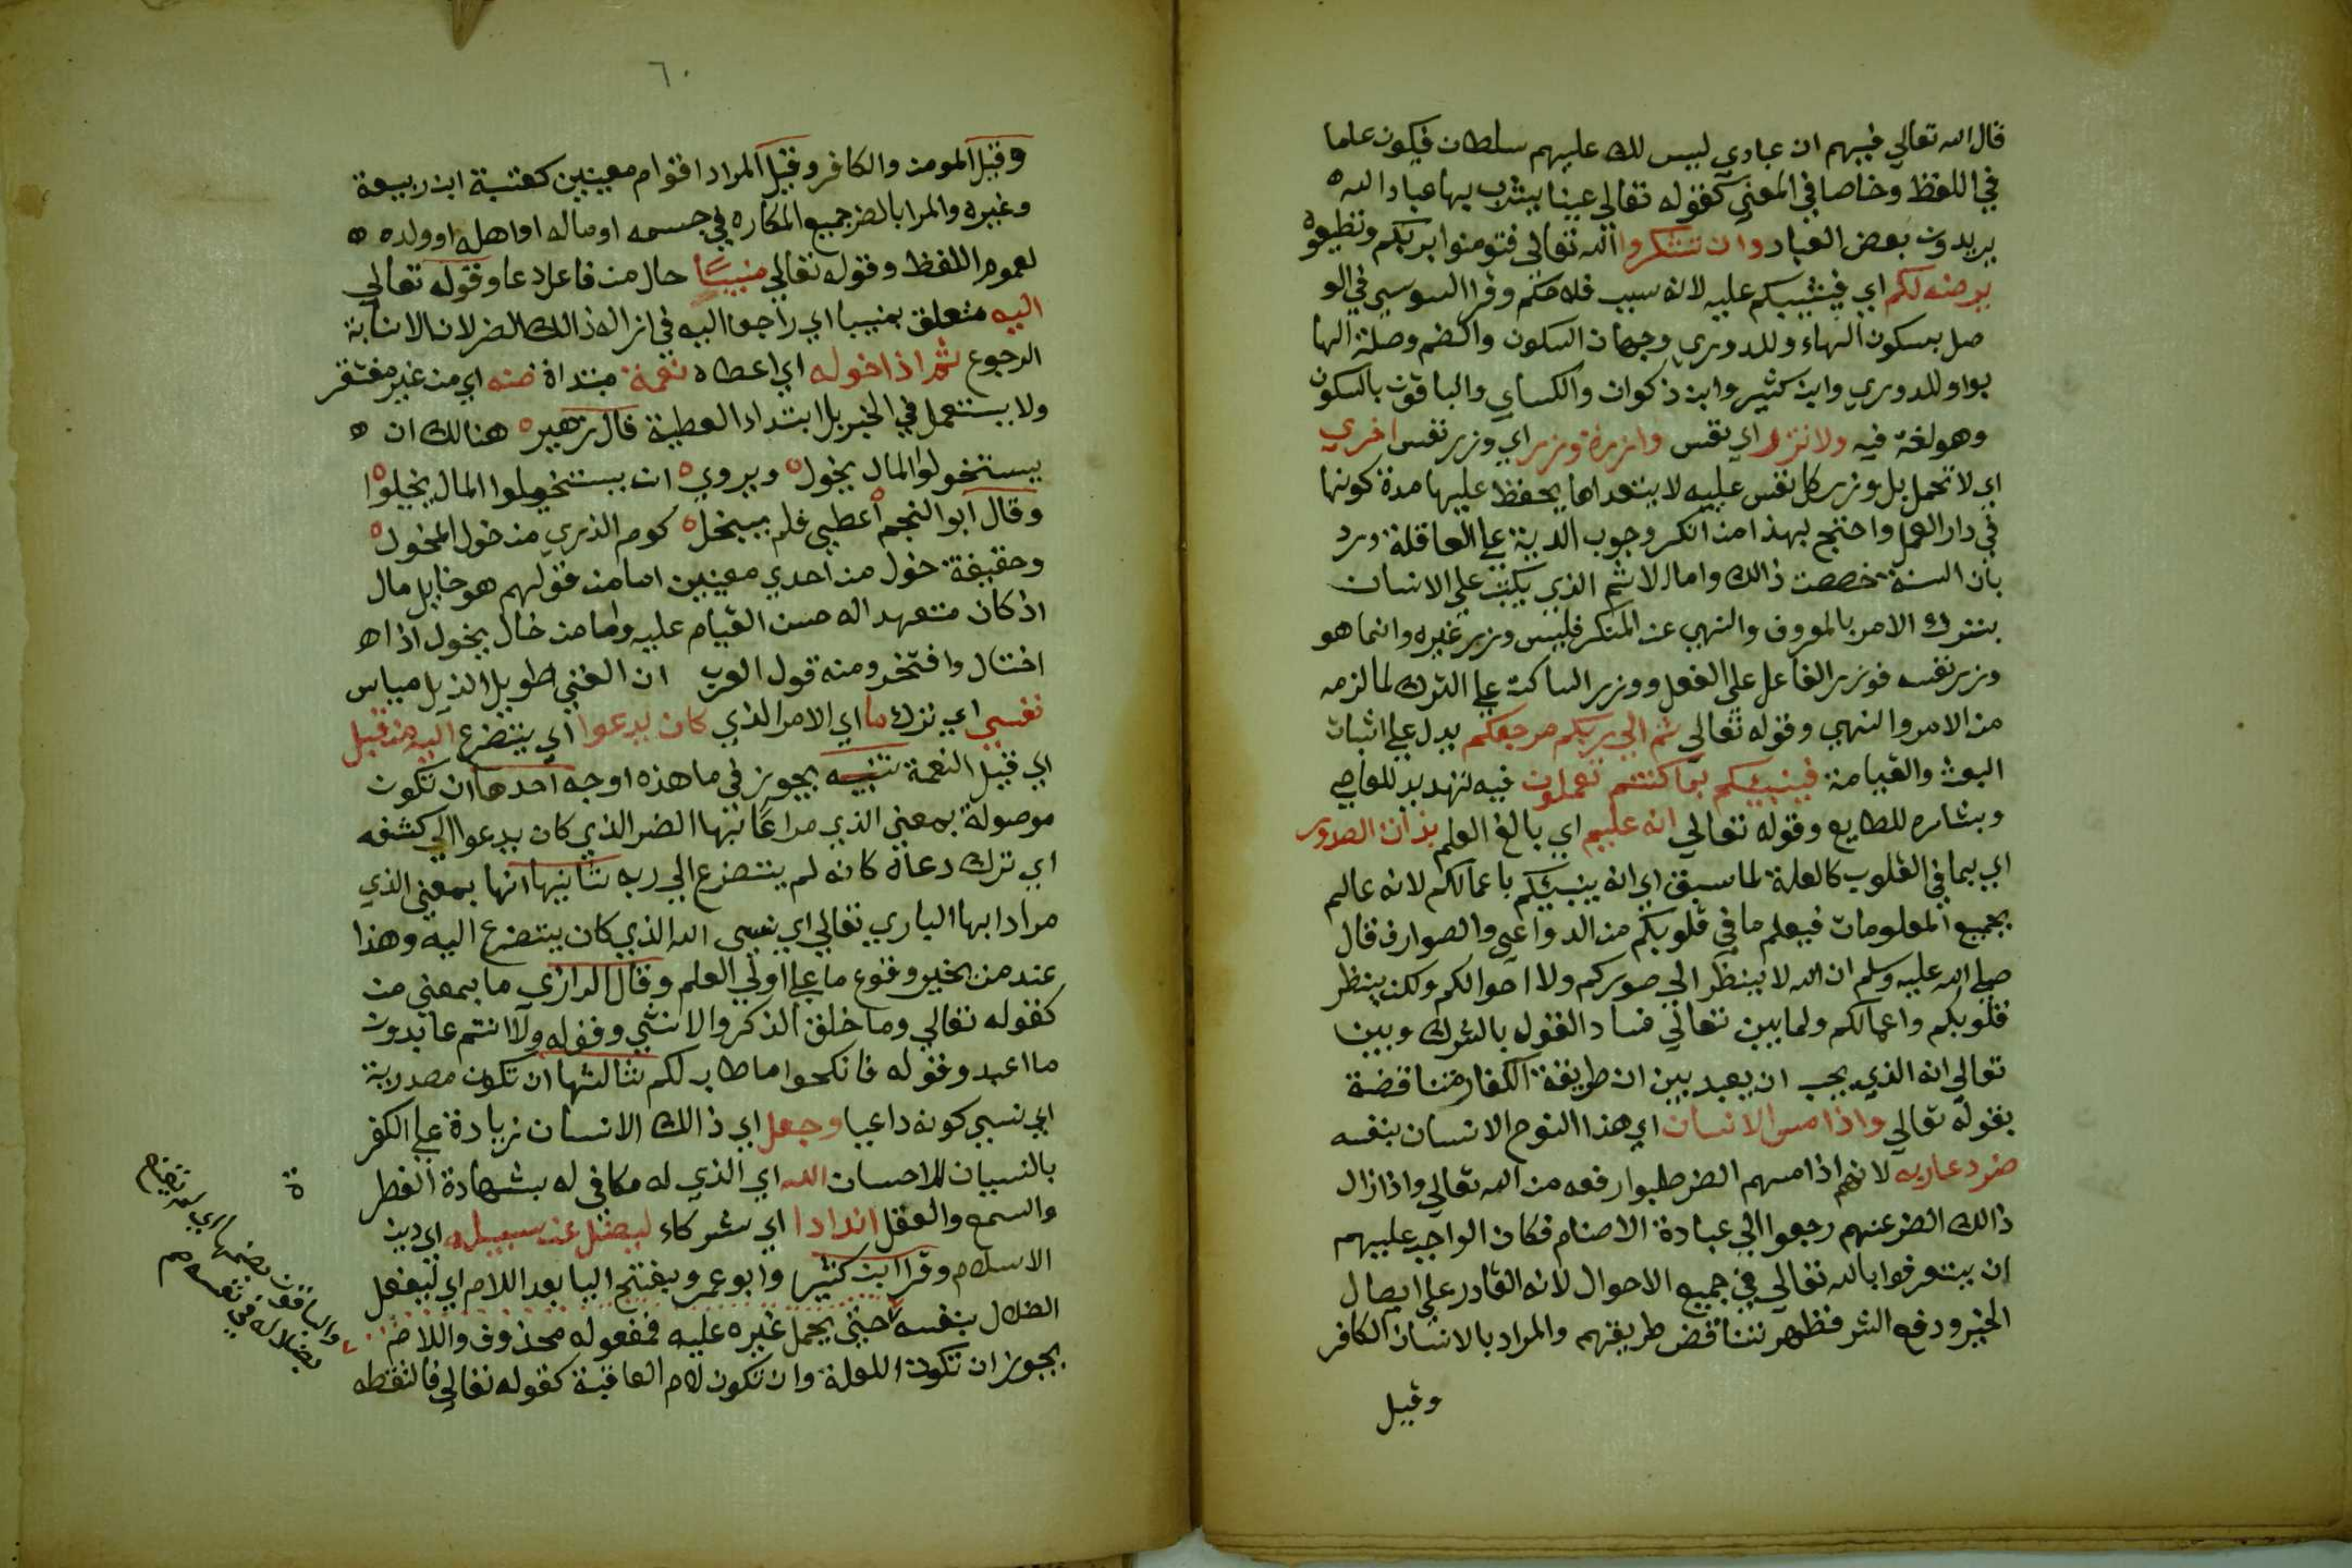 قال الله تعالي فيهم ان عبادي ليس لك عليهم سلطان فيكون عاما
في اللفظ وخاصا في المعني كقوله تعالي عينا يشرب بها عباد الله ه
يريدون بعض العباد وان تشكروا الله تعالى فتومنوا بربكم وتطيعوه
يرضه لكم اي فيثيبكم عليه لانه سبب فلاحكم وقرا السوسي في الو
صل بسكون الهاء وللدوري وجهان السكون والضم وصلة الها
بواو للدوري وابن كثير وابن ذكوان والكساي والباقون بالسكون
وهو لغة فيه ولا تزر اي نفس وازرة وزر اي وزر نفس اخري
اي لا تحمل بل وزر كل نفس عليه لا يتعداها يحفظ عليها مدة كونها
في دار العمل واحتج بهذا من انكر وجوب الدية علي العاقلة ورد
بان السنة خصصت ذالك واما الاثم الذي يكتب علي الانسان
بترك الامر بالمعروف والنهي عن المنكر فليس وزر غيره وانما هو
وزر نفسه فوزر الفاعل علي الفعل ووزر الساكت علي الترك لما لزمه
من الامر والنهي وقوله تعالي ثم الي ربكم مرجعكم يدل علي اثبات
البعث والقيامة فينبيكم بما كنتم تعملون فيه تهديد للعاصي
وبشاره للطايع وقوله تعالي انه عليم اي بالغ العلم بذات الصدور
اي بما في القلوب كالعلة لما سبق اي انه ينبيكم باعمالكم لانه عالم
بجميع المعلومات فيعلم ما في قلوبكم من الدواعي والصوارف قال
صلي الله عليه وسلم ان الله لا ينظر الي صوركم ولا احوالكم ولكن ينظر
قلوبكم واعمالكم ولما بين تعالي فساد القول بالشرك وبين
تعالي انه الذي يجب ان يعبد بين ان طريقة الكفار متناقضة
بقوله تعالي واذا مس الانسان اي هذا النوع الانسان بنفسه
ضر دعا ربه لانهم اذا مسهم الضر طلبوا رفعه من الله تعالي واذا زال
ذالك الضر عنهم رجعوا الي عبادة الاصنام فكان الواجب عليهم
ان يتعرفوا بالله تعالي في جميع الاحوال لانه القادر علي ايصال
الخير ودفع الشر فظهر تناقض طريقتهم والمراد بالانسان الكافر
وقيل
٦٠
وقيل المومن والكافر وقيل المراد اقوام معينين كعتبة ابن ربيعة
وغيره والمرا بالضر جميع المكاره في جسمه او ماله او اهله او ولده ه
لعموم اللفظ وقوله تعالي منيبا حال من فاعل دعا وقوله تعالي
اليه متعلق بمنيبا اي راجعا اليه في ازاله ذالك الضر لان الانابة
الرجوع ثم اذا خوله اي اعطاه نعمة مبتداة منه اي من غير مفتقر
ولا يستعمل في الخير بل ابتداء العطية قال زهيره هنالك ان ه
يستخولوا المال يخوله ويرويه ان يستخيلوا المال يخيلوا
وقال ابو النجم أعطي فلم يبخل ه كوم الذري من خول المخول ه
وحقيقة خول من احدي معنيين اما من قولهم هو خايل مال
اذ كان متعهدا له حسن القيام عليه واما من خال يخول اذا ه
اختال وافتخر ومنه قول العرب ان الغني طويل الذيل مياس
نسي اي ترك ما اي الامر الذي كان يدعوا اي يتضرع اليه من قبل
اي قبل النعمة تنبيه يجوز في ما هذه اوجه احدها ان تكون
موصولة بمعني الذي مرادا بها الضر الذي كان يدعوا الي كشفه
اي ترك دعاه كانه لم يتضرع الي ربه ثانيها انها بمعني الذي
مرادا بها الباري تعالي اي نسي الله الذي كان يتضرع اليه وهذا
عند من يجيز وقوع ما علي اولي العلم وقال الرازي ما بمعني من
كقوله تعالي وما خلق الذكر والانثي وقوله ولا انتم عابدون
ما اعبد وقوله فانكحوا ما طاب لكم ثالثها ان تكون مصدرية
اي نسي كونه داعيا وجعل اي ذالك الانسان زيادة علي الكفر
بالنسيان للاحسان الله اي الذي له مكافي له بشهادة الفطر ة
والسمع والعقل اندادا اي شركاء ليضل عن سبيله اي دين
الاسلام وقرا ابن كثير وابو عمرو بفتح اليا بعد اللام اي ليفعل
الضلال بنفسه حتي يحمل غيره عليه فمفعوله محذوف واللام
يجوز ان تكون للعلة وان تكون لام العاقبة كقوله تعالي فالتقطه
والباقون بضمها اي